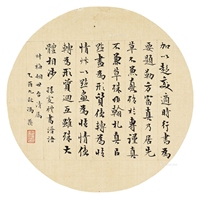 加以趨變適時行書為
要題勒方富真乃居先
草不兼真殆於專謹真
不兼草殊翰札真
點畫為形質使轉為
情性草以點畫為情性使
轉為形質迴互雖殊大
體相涉 孫虔禮書譜語
乙酉九秋馮